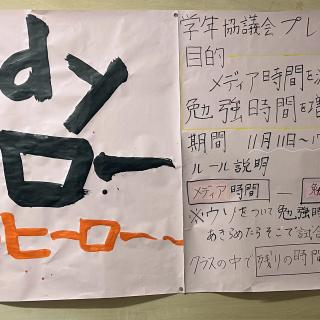 dy
ロー
ヒーロー
学年協議会プレ
目的
メディア時間を
勉強時間を増
期間 11月11日〜1
ルール説明
メディア時間 ―
※ウソをついて勉強時
あきらめたらそこで試合
クラスの中で残りの時間